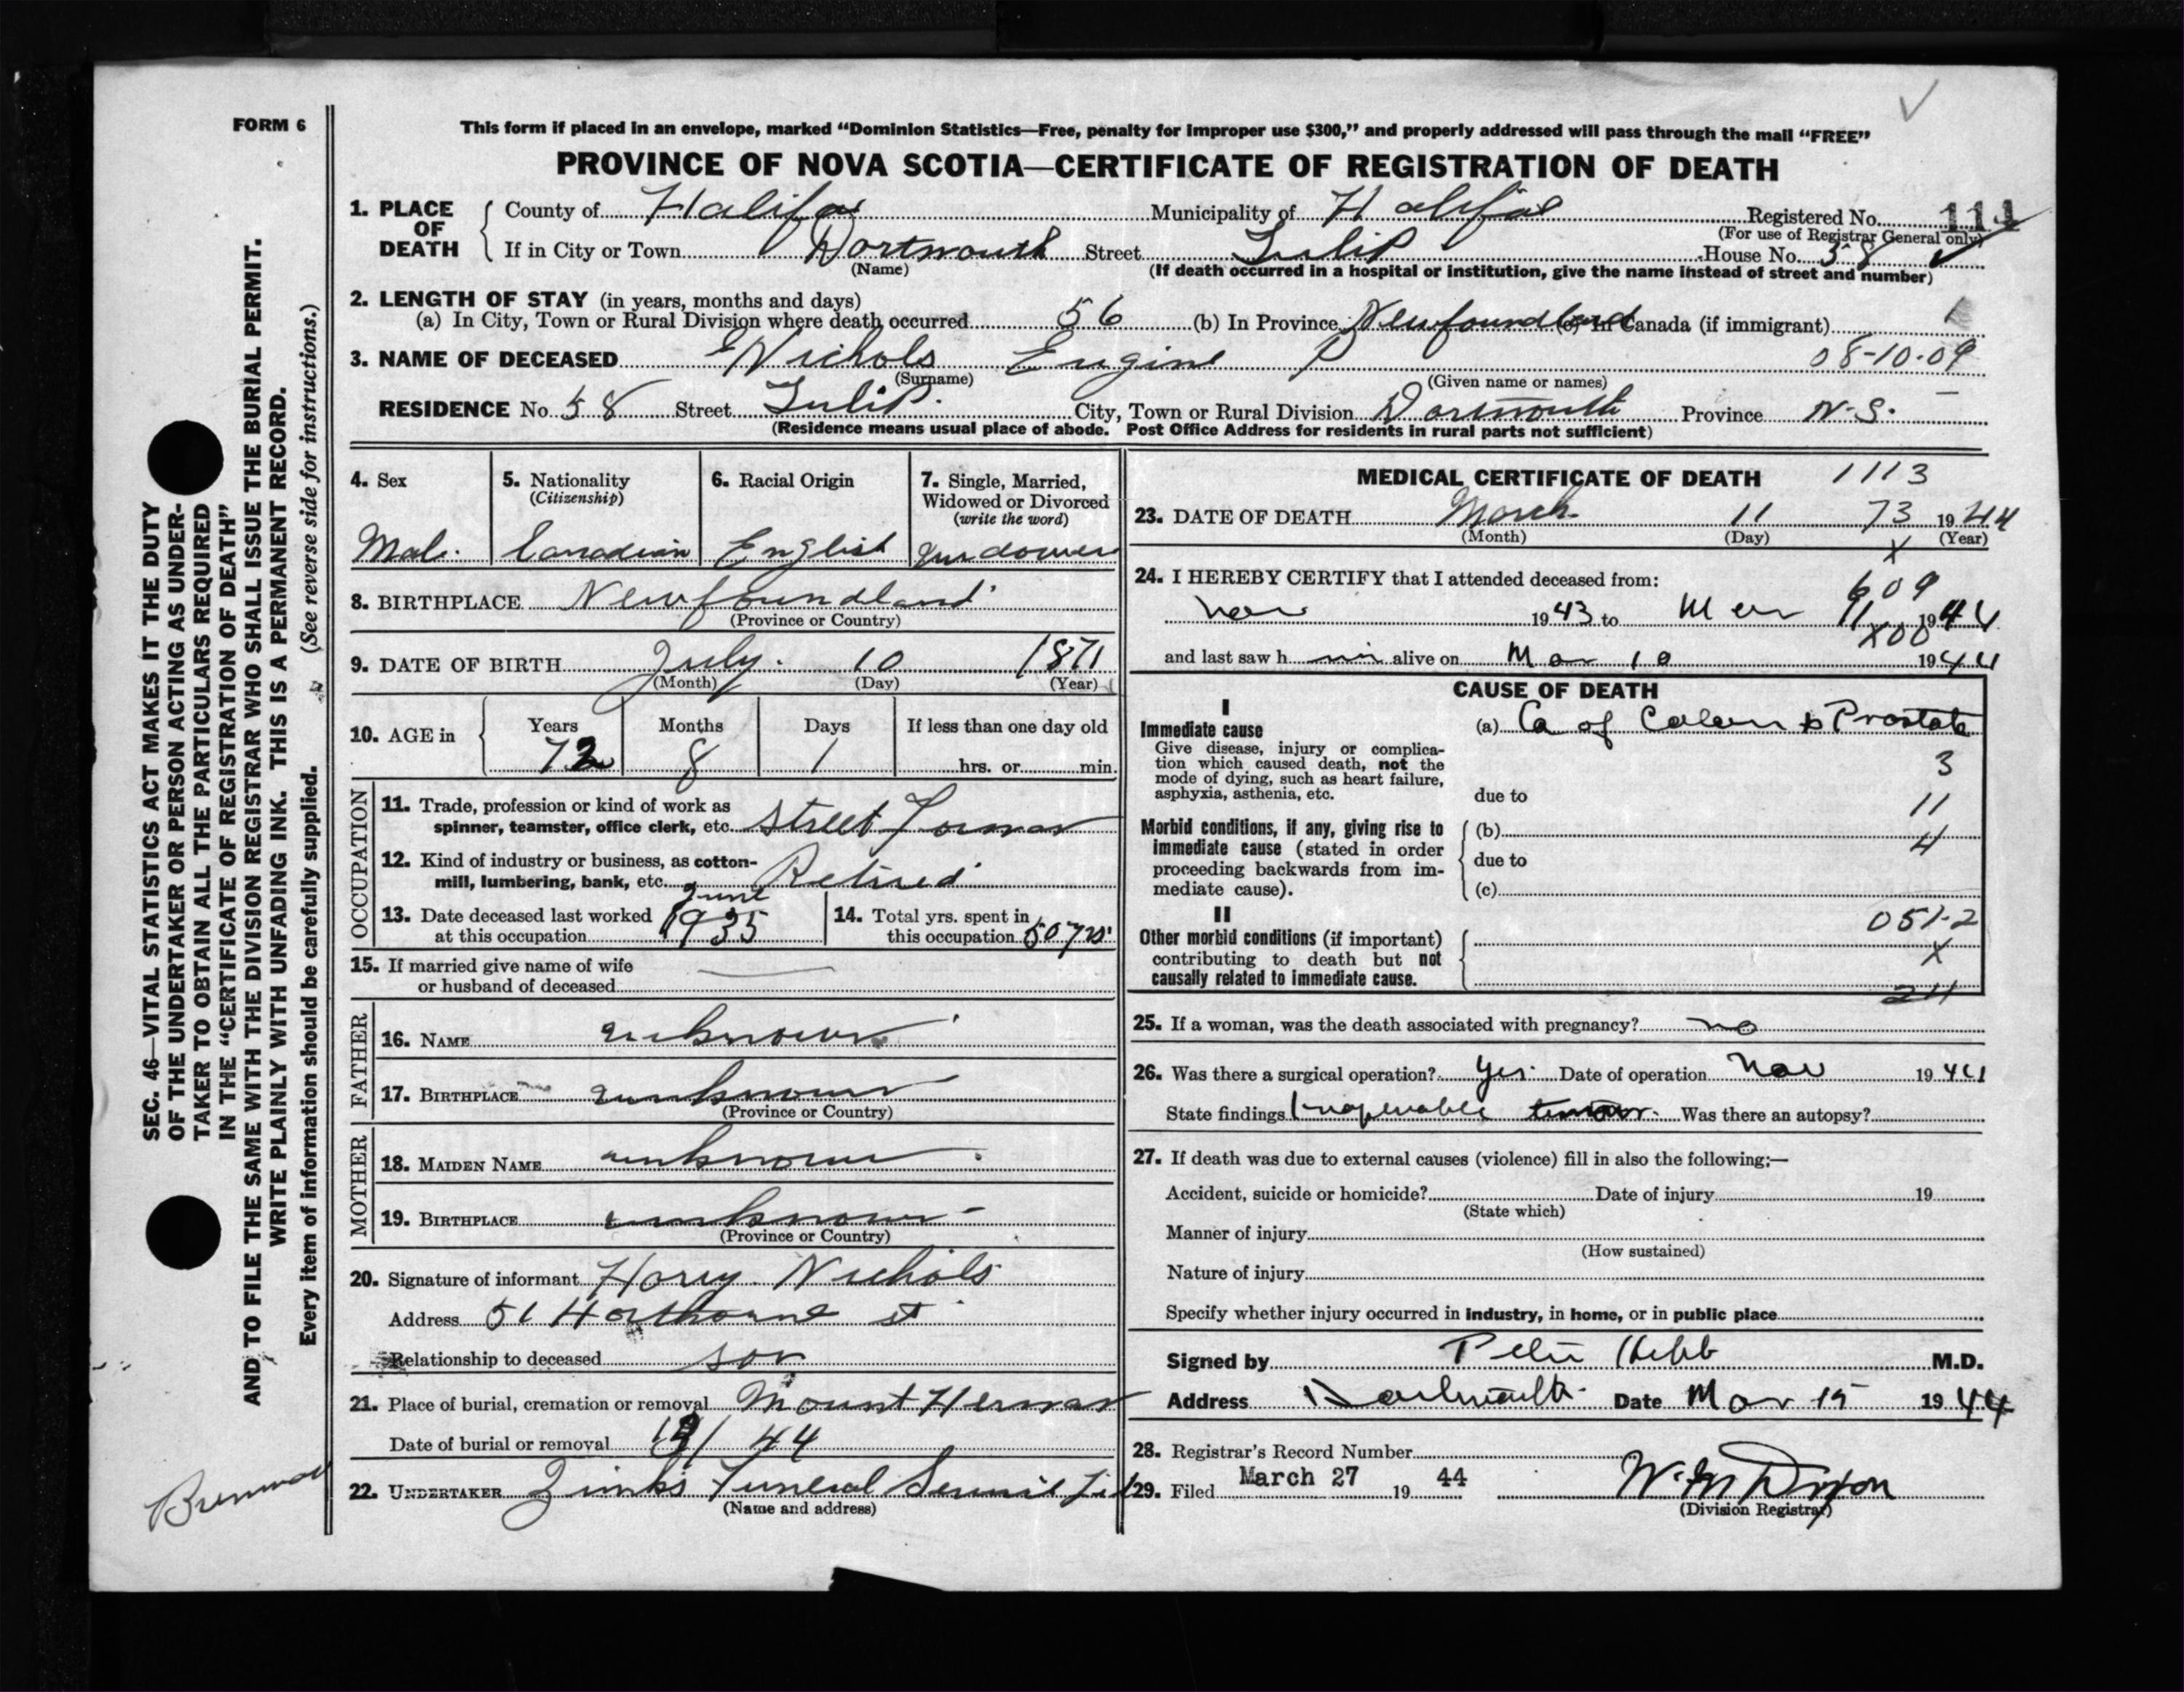 FORM 6
This form if placed in an envelope, marked “Dominion Statistics—Free, penalty for improper use $300,” and properly addressed will pass through the mail “FREE”
PROVINCE OF NOVA SCOTIA—CERTIFICATE OF REGISTRATION OF DEATH
1. PLACE OF DEATH { County of Halifax Municipality of Halifax Registered No. 114
(For use of Registrar General only)
If in City or Town Dartmouth Street Tulip House No. 58
(Name) (If death occurred in a hospital or institution, give the name instead of street and number)
2. LENGTH OF STAY (in years, months and days)
(a) In City, Town or Rural Division where death occurred 56 (b) In Province Newfoundland (c) In Canada (if immigrant)
3. NAME OF DECEASED Nichols Engine P 08-10-09
(Surname) (Given name or names)
RESIDENCE No. 58 Street Tulip. City, Town or Rural Division Dartmouth Province N.S.
(Residence means usual place of abode. Post Office Address for residents in rural parts not sufficient)
4. Sex 5. Nationality (Citizenship) 6. Racial Origin 7. Single, Married, Widowed or Divorced (write the word)
Male. Canadian English Widower
8. BIRTHPLACE Newfoundland
(Province or Country)
9. DATE OF BIRTH July. 10 1871
(Month) (Day) (Year)
10. AGE in { Years Months Days If less than one day old
72 8 1 hrs. or min.
OCCUPATION
11. Trade, profession or kind of work as
spinner, teamster, office clerk, etc. Street Forman
12. Kind of industry or business, as cotton-
mill, lumbering, bank, etc. Retired
13. Date deceased last worked at this occupation June 1935
14. Total yrs. spent in this occupation 50 yrs
15. If married give name of wife
or husband of deceased
FATHER
16. NAME unknown
17. BIRTHPLACE unknown
(Province or Country)
MOTHER
18. MAIDEN NAME unknown
19. BIRTHPLACE unknown
(Province or Country)
20. Signature of informant Harry Nichols
Address 51 Hawthorne st
Relationship to deceased son
21. Place of burial, cremation or removal Mount Herman
Date of burial or removal / 44
22. UNDERTAKER Zinks Funeral Service Ltd
(Name and address)
MEDICAL CERTIFICATE OF DEATH 1113
23. DATE OF DEATH March 11 73 1944
(Month) (Day) X (Year)
24. I HEREBY CERTIFY that I attended deceased from:
609
Nov 1943 to Mar 11 1944
X00
and last saw him alive on Mar 10 1944
CAUSE OF DEATH
I
Immediate cause (a) Ca of Colon & Prostate
Give disease, injury or complica-
tion which caused death, not the 3
mode of dying, such as heart failure,
asphyxia, asthenia, etc. due to 11
Morbid conditions, if any, giving rise to (b)
immediate cause (stated in order 4
proceeding backwards from im- due to
mediate cause). (c)
II 051-2
Other morbid conditions (if important)
contributing to death but not X
causally related to immediate cause.
25. If a woman, was the death associated with pregnancy? no
26. Was there a surgical operation? Yes. Date of operation Nov 1944
State findings Inoperable tumor. Was there an autopsy?
27. If death was due to external causes (violence) fill in also the following:—
Accident, suicide or homicide? Date of injury 19
(State which)
Manner of injury
(How sustained)
Nature of injury
Specify whether injury occurred in industry, in home, or in public place
Signed by Peter Hebb M.D.
Address Dartmouth. Date Mar 15 1944
28. Registrar's Record Number
29. Filed March 27 19 44 W. M Dixon
(Division Registrar)
SEC. 46—VITAL STATISTICS ACT MAKES IT THE DUTY
OF THE UNDERTAKER OR PERSON ACTING AS UNDER-
TAKER TO OBTAIN ALL THE PARTICULARS REQUIRED
IN THE “CERTIFICATE OF REGISTRATION OF DEATH”
AND TO FILE THE SAME WITH THE DIVISION REGISTRAR WHO SHALL ISSUE THE BURIAL PERMIT.
WRITE PLAINLY WITH UNFADING INK. THIS IS A PERMANENT RECORD.
Every item of information should be carefully supplied. (See reverse side for instructions.)